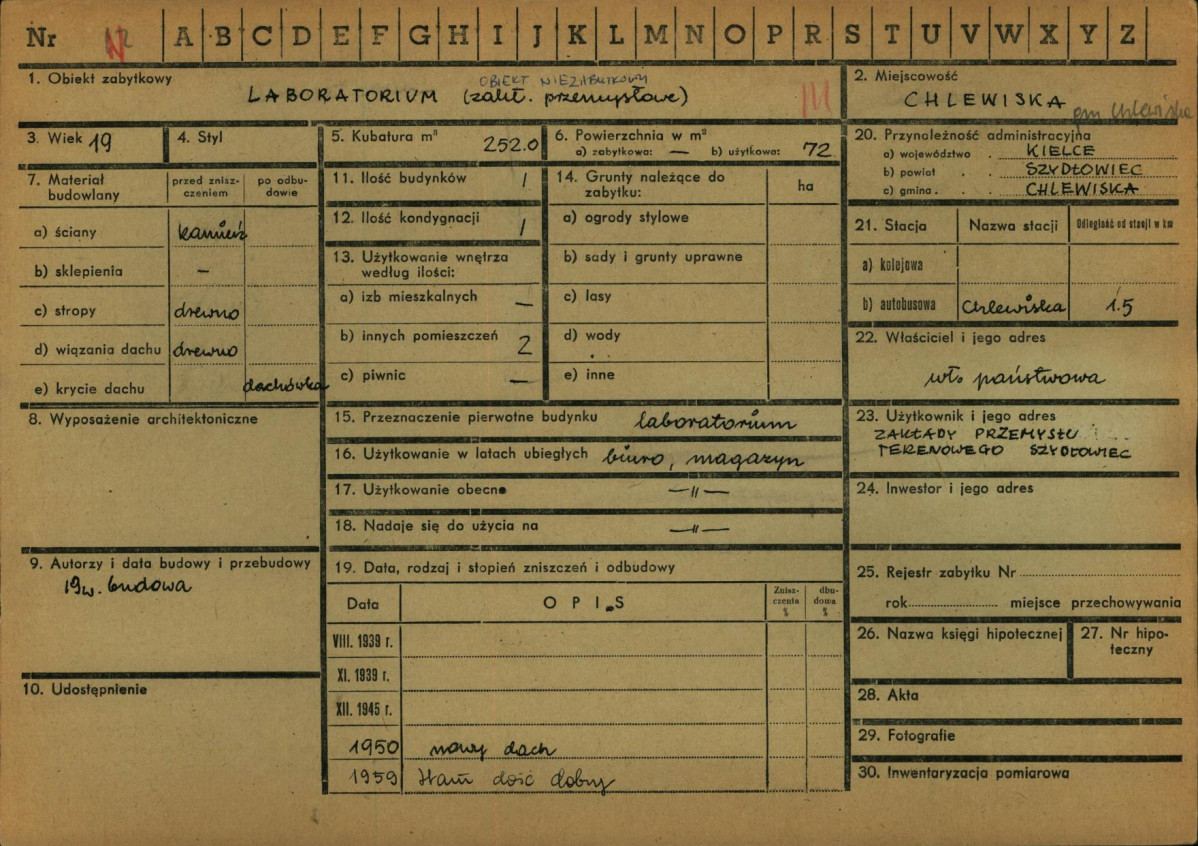 Nr A B C D E F G H I J K L M N O P R S T U V W X Y Z
1. Obiekt zabytkowy
OBIEKT NIEZABYTKOWY
LABORATORIUM (zakł. przemysłowe)
III
2. Miejscowość
CHLEWISKA
gm Chlewiska
3. Wiek 19
4. Styl
5. Kubatura m³ 252.0
6. Powierzchnia w m²
a) zabytkowa: — b) użytkowa: 72
7. Materiał budowlany
przed znisz-
czeniem
po odbu-
dowie
a) ściany kamień
b) sklepienia —
c) stropy drewno
d) wiązania dachu drewno
e) krycie dachu dachówka
8. Wyposażenie architektoniczne
9. Autorzy i data budowy i przebudowy
19w. budowa
10. Udostępnienie
11. Ilość budynków 1
12. Ilość kondygnacji 1
13. Użytkowanie wnętrza
według ilości:
a) izb mieszkalnych —
b) innych pomieszczeń 2
c) piwnic —
14. Grunty należące do
zabytku:
ha
a) ogrody stylowe
b) sady i grunty uprawne
c) lasy
d) wody
e) inne
15. Przeznaczenie pierwotne budynku laboratorium
16. Użytkowanie w latach ubiegłych biuro, magazyn
17. Użytkowanie obecne —„—
18. Nadaje się do użycia na —„—
19. Data, rodzaj i stopień zniszczeń i odbudowy
Data OPIS
Znisz-
czenia
%
dbu-
dowa
%
VIII. 1939 r.
XI. 1939 r.
XII. 1945 r.
1950 nowy dach
1959 Stan dość dobry
20. Przynależność administracyjna
a) województwo . KIELCE
b) powiat . . SZYDŁOWIEC
c) gmina . . . CHLEWISKA
21. Stacja Nazwa stacji Odległość od stacji w km
a) kolejowa
b) autobusowa Chlewiska 1.5
22. Właściciel i jego adres
wł. państwowa
23. Użytkownik i jego adres
ZAKŁADY PRZEMYSŁU
TERENOWEGO SZYDŁOWIEC
24. Inwestor i jego adres
25. Rejestr zabytku Nr
rok miejsce przechowywania
26. Nazwa księgi hipotecznej
27. Nr hipo-
teczny
28. Akta
29. Fotografie
30. Inwentaryzacja pomiarowa